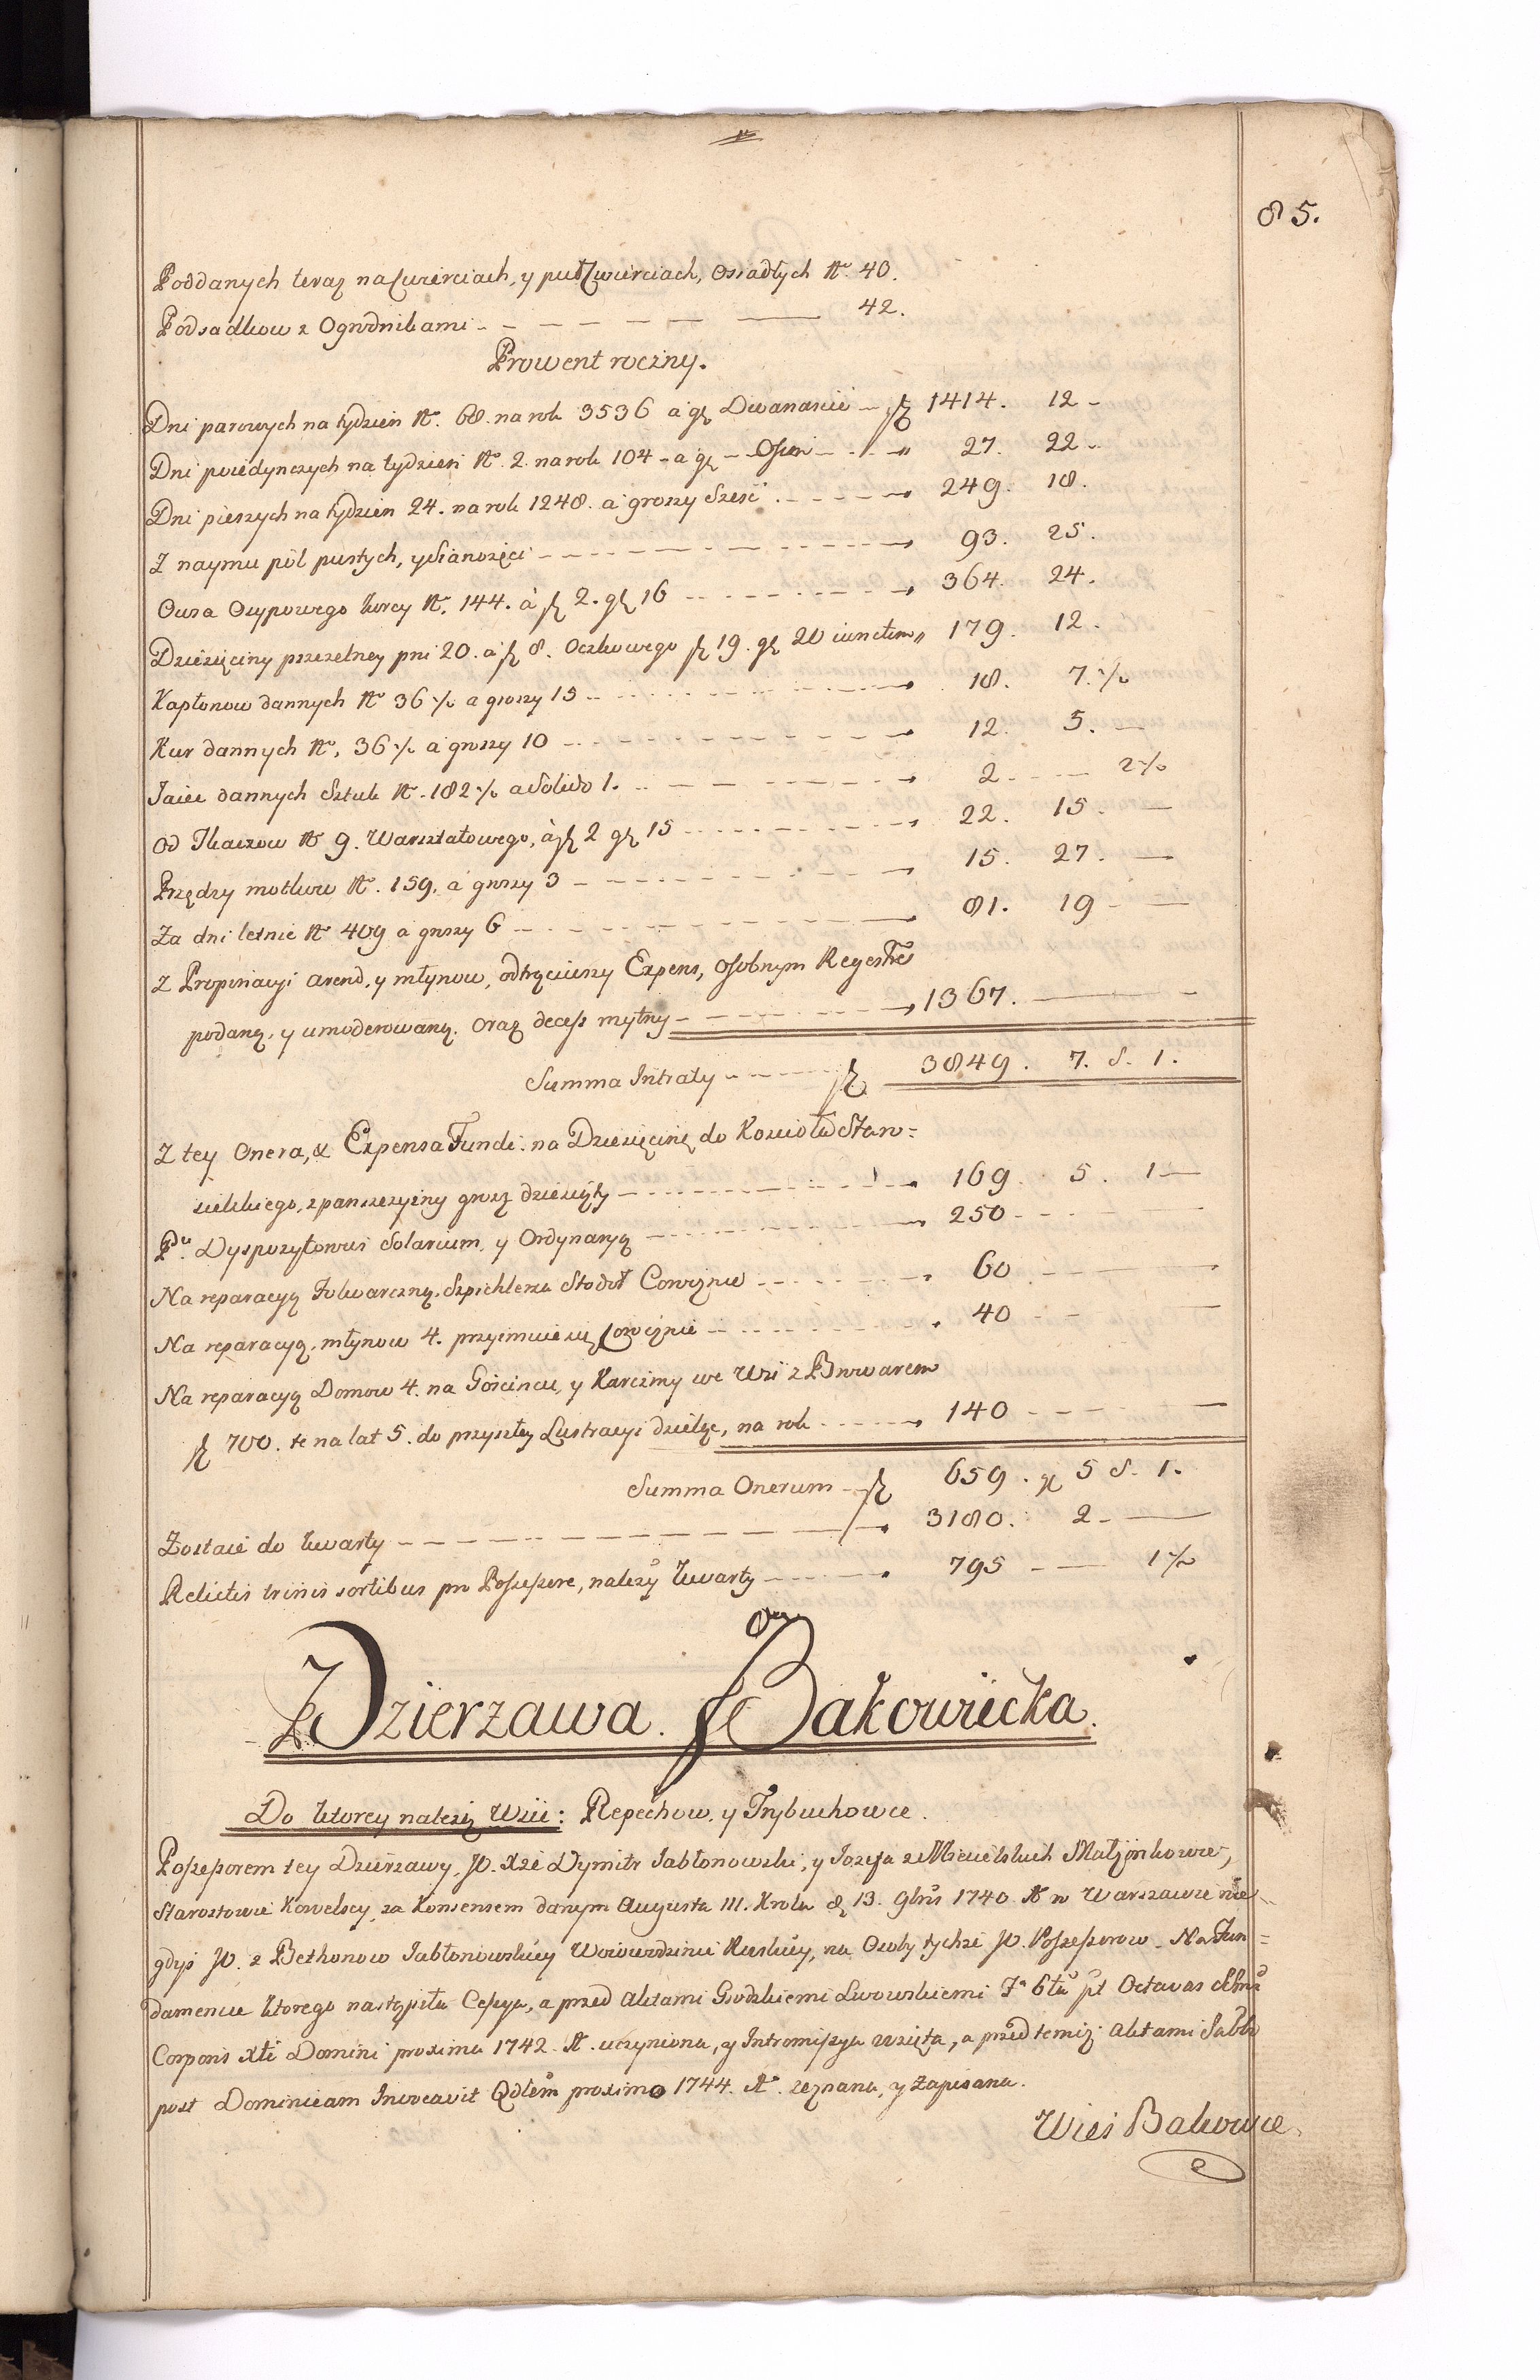 85.
Poddanych teraz na Cwierciach, y puł Cwierciach, osiadłych N. 40.
Podsadkow z Ogrodnikami - - - - - 42.
Prowent roczny.
Dni parowych na tydzien N. 68. na rok 3536 à gr Dwanascie - zł 1414. 12 -
Dni poiedynczych na tydzien N. 2. na rok 104 - a gr - Osm - - " 27. 22 -
Dni pieszych na tydzien 24. na rok 1248. a groszy Szesć - - - 249. 18.
Z naymu pol pustych, y Sianozęci - - - 93. 25.
Owsa Osypowego korcy N. 144. à zł 2. gr 16 - - - 364. 24.
Dziesięciny pszczelney pni 20. a zł 8. Oczkowego zł 19. gr 20 iunctim " 179. 12.
Kapłonow dannych N. 36 ½ a groszy 15 - - - 18. 7. ½
Kur dannych N. 36 ½ a groszy 10 - - - 12. 5. -
Jaiec dannych Sztuk N. 182 ½ a Solido 1. - - - 2 - - 2 ½
Od Tkaczow N. 9. Warsztatowego, à zł 2 gr 15 - - - 22. 15. -
Przędzy motkow N. 159. a groszy 3 - - - 15. 27. -
Za dni letnie N. 409 a groszy 6 - - - 81. 19 - -
Z Propinacyi arend, y młynow, odtrąciwszy Expens, osobnym Regestre
podaną, y umoderowaną. oraz decess mytny - - - 1367. - -
Summa Intraty - - - zł 3849. 7. S. 1.
Z tey Onera, & Expensa Fundi. na Dziesięcinę do Kosciola Staro=
sielskiego, z panszczyzny grosz dziesiąty - - - 169. 5. 1 -
Pu. Dyspozytorowi Solarium, y Ordynaryą - - - 250 - - -
Na reparacyą Folwarczną, Szpichlerza Stodoł Corocznie - - - 60 - -
Na reparacyą, młynow 4. przyimuie się Corocznie - - - 40 - -
Na reparacyą Domow 4. na Goscincu, y Karczmy we Wsi z Browarem
zł 700. te na lat 5. do przyszłey Lustracyi dzieląc, na rok - - - 140 - -
Summa Onerum - zł 659. gr 5 S. 1.
Zostaie do kwarty - - - 3180. 2 - -
Relictis trinis sortibus pro Possessore, należy kwarty - - - 795 - - 1 ½
Dzierzawa Bakowiecka.
Do ktorey nalezą Wsie: Repechow, y Trybuchowce.
Possessorem tey Dzierzawy, JO. Xże Dymitr Jabłonowski, y Jozefa z Micielskich Małżonkowie,
Starostowie Kowelscy, za Konsensem danym Augusta III. Krola d. 13. 9bris 1740 A. w Warszawie nie=
gdyś JO. z Bethonow Jabłonowskiey Woiewodzinie Ruskiey, na Osoby tychże JO. Possessorow. Na Fun=
damencie ktorego nastąpiła Cessya, a przed Aktami Grodzkiemi Lwowskiemi post Octavas
Corporis Xti Domini proxima 1742. A. uczyniona, y Intromissya wzięta, a przed temiż Aktami Sabbo
post Dominicam Invocavit proximo 1744. A. zeznana, y Zapisana.
Wieś Bakowce.